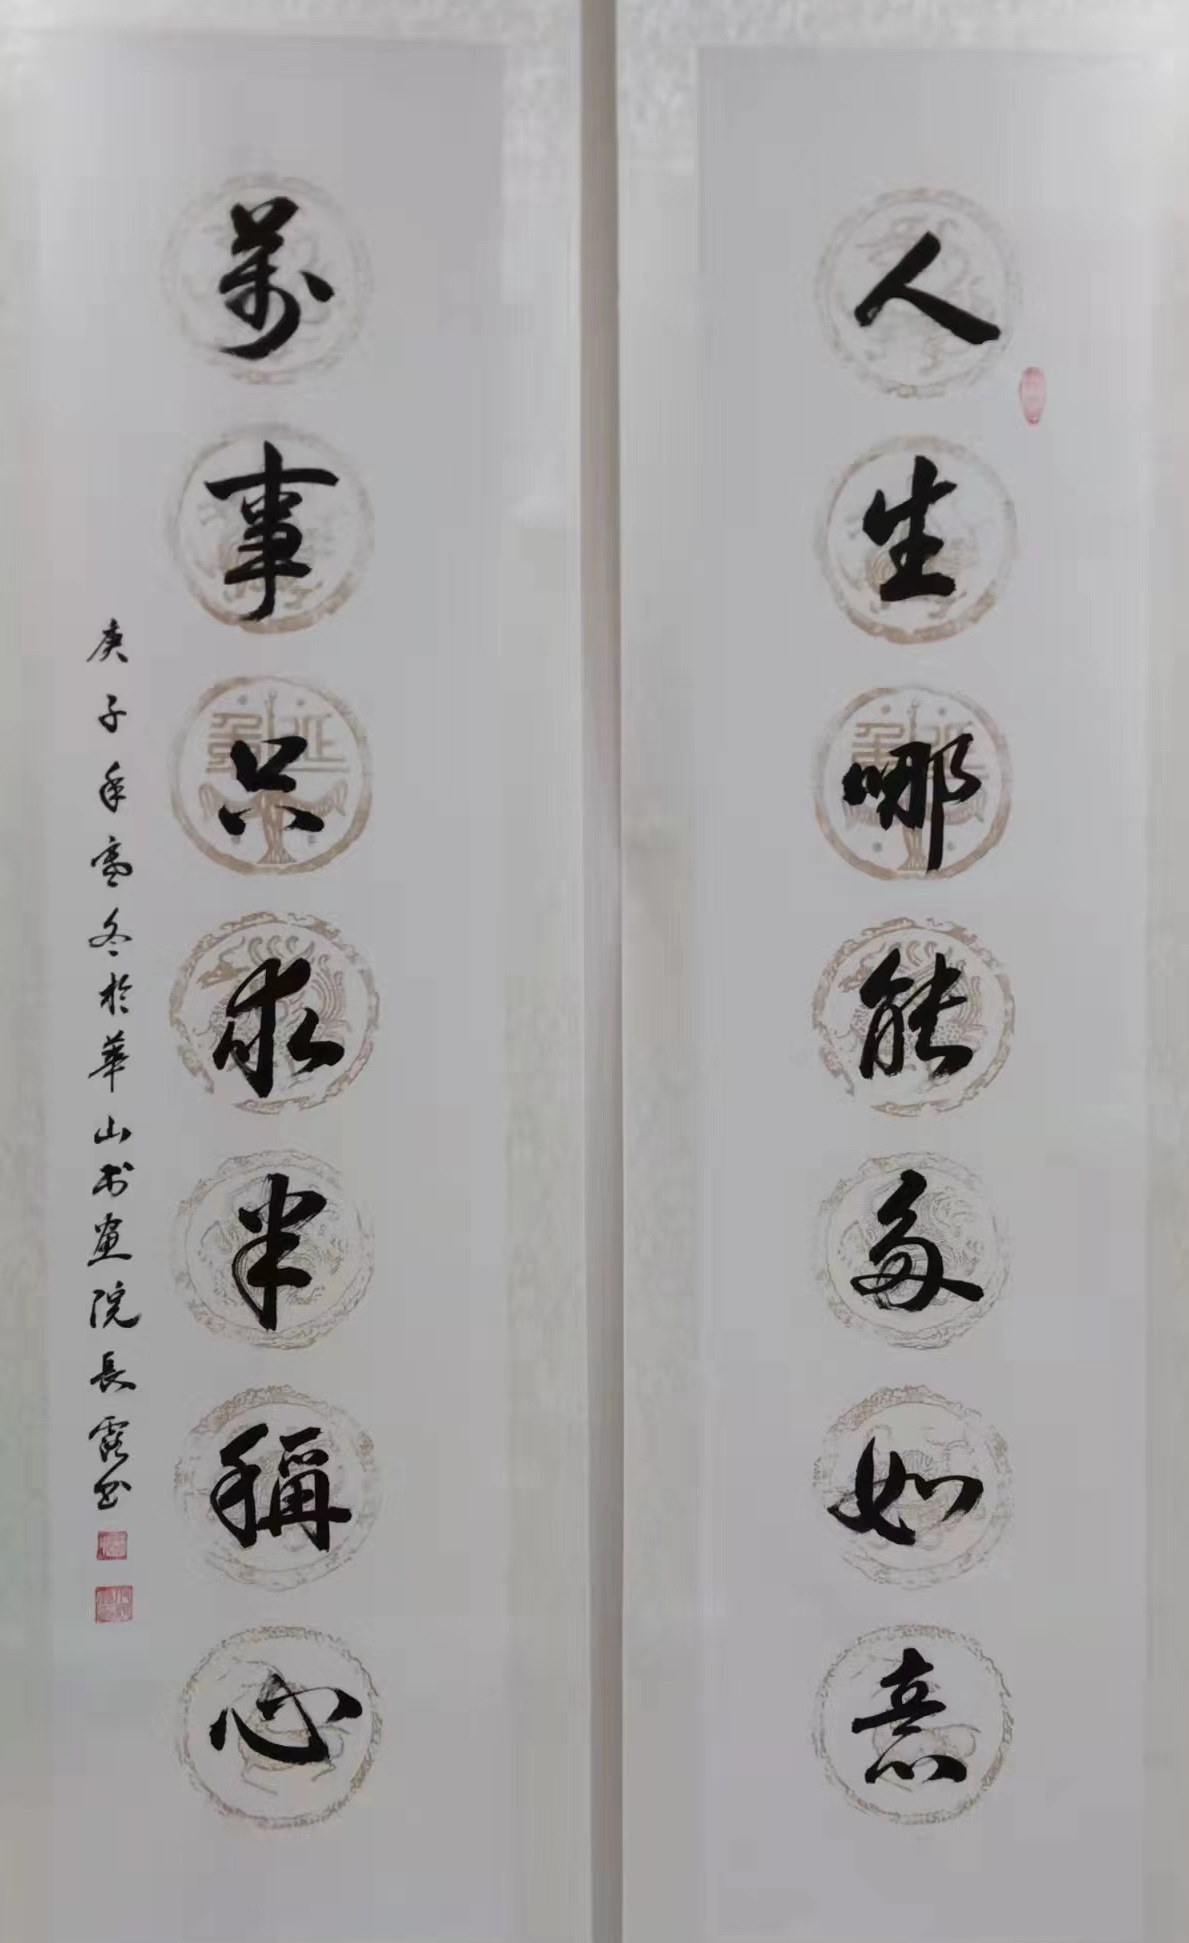 人生哪能多如意
萬事只求半稱心
庚子年寒冬於華山书画院長霞书